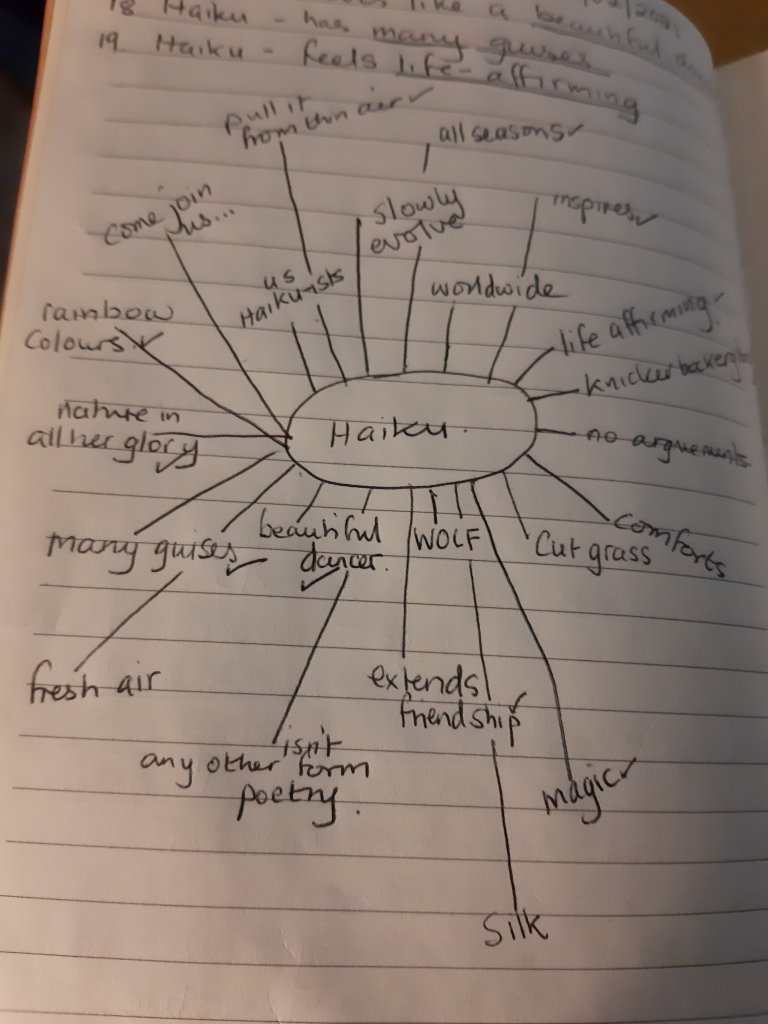 like a beautiful
18 Haiku - has many guises
19 Haiku - feels life-affirming
pull it
from thin air ✓
all seasons ✓
come join
us...
slowly
evolve
inspires ✓
us
Haiku-ists
worldwide
rainbow
colours ✓
life affirming ✓
knickerbockerglo
nature in
all her glory ✓
Haiku.
no arguements
many guises ✓
beautiful
dancer. ✓
WOLF
Cut grass
comforts
fresh air
extends
friendship ✓
isn't
any other form
poetry.
magic ✓
Silk